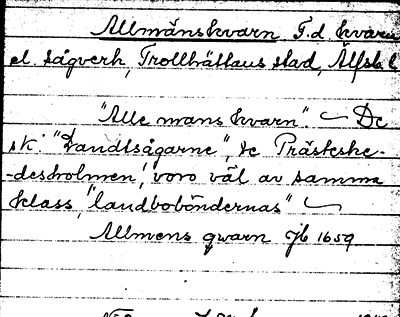 Allmänskvarn F.d. kvarn
el. sågverk, Trollhättans stad, Älfsb. l
"Alle mans kvarn". — De
s.k. "Landtsågarne", se Prästeske-
-desholmen, voro väl av samma
klass, "landtboböndernas" —
Allmens qwarn Jb 1659